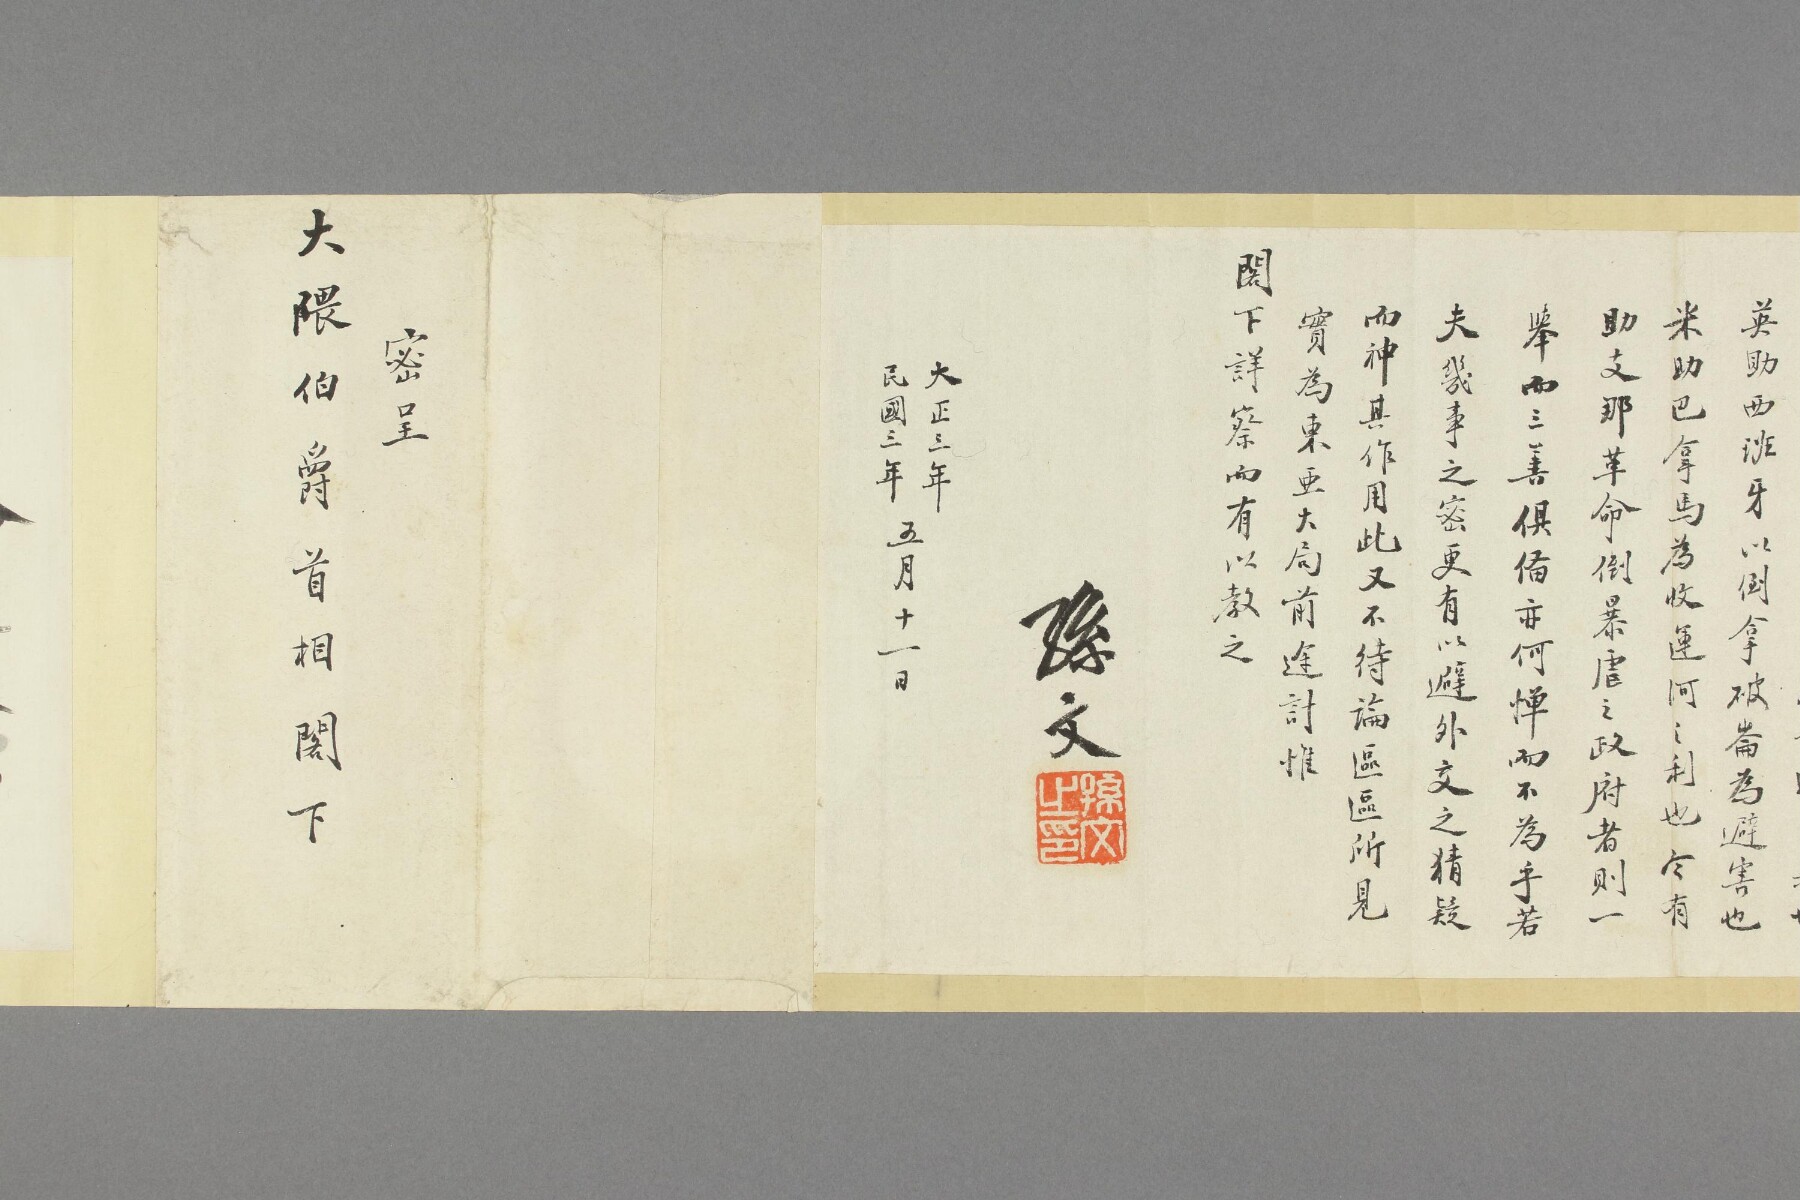 英助西班牙以倒拿破崙為避害也
米助巴拿馬為收運河之利也今有
助支那革命倒暴虐之政府者則一
舉而三善俱備亦何憚而不為乎若
夫幾事之密更有以避外交之猜疑
而神其作用此又不待論區區所見
實為東亜大局前途計惟
閣下詳察而有以教之
孫文
孫文之印
大正三年
民國三年
五月十一日
密呈
大隈伯爵首相閣下